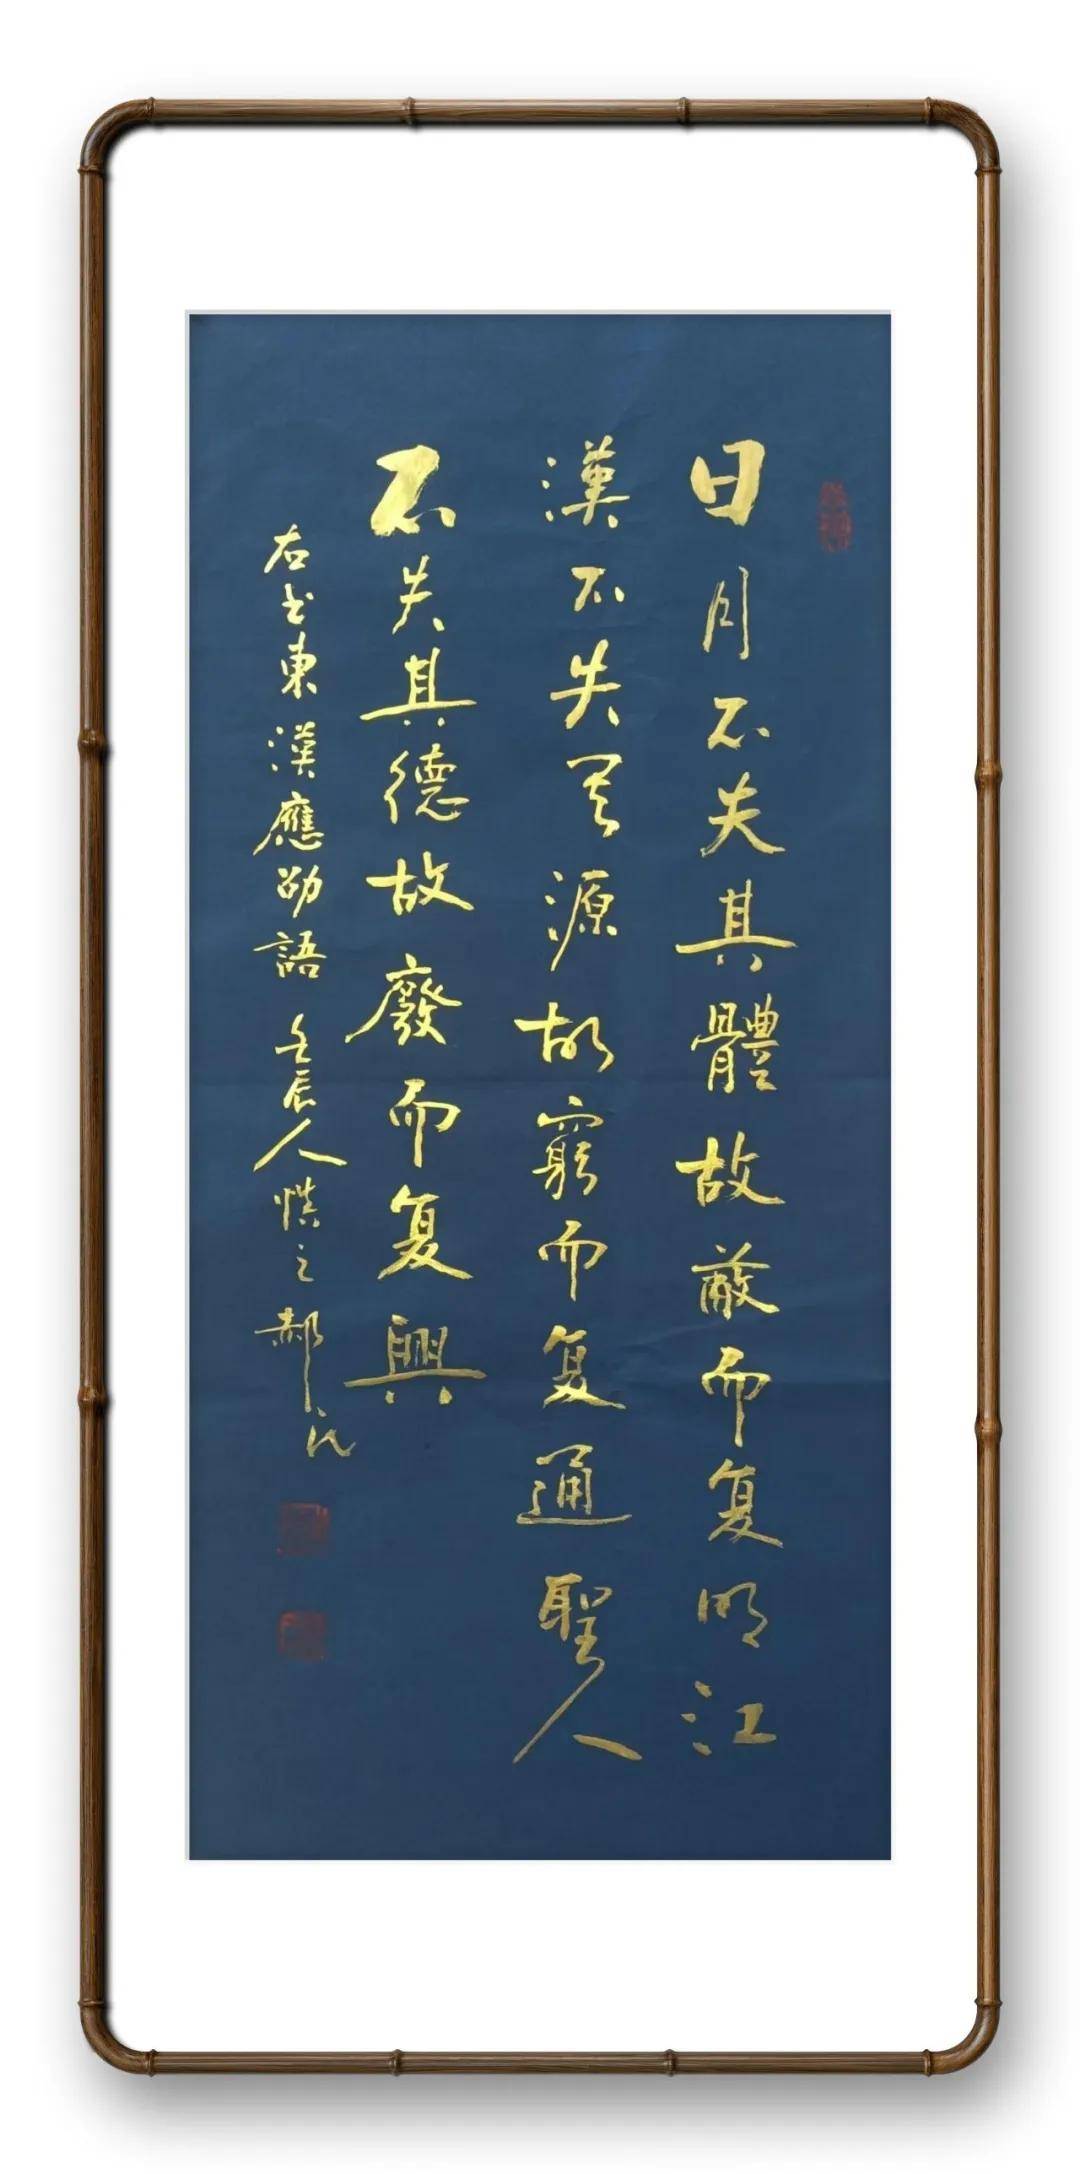 日月不失其體故蔽而复明江
漢不失其源故窮而复通聖人
不失其德故廢而复興
右书東漢應劭語 壬辰人慎之郝